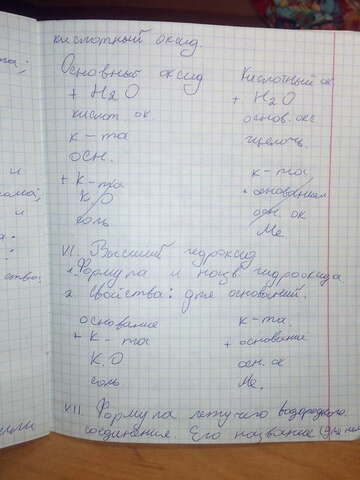 кислотный оксид.
Основный оксид
+ H2O
кислот. ок.
к-та
осн.
+ к-та
К.О
соль
Кислотный ок
+ H2O
основ. окс
щелочь.
к-та
+ основания
осн. ок
Ме
VI. Высший гидроксид
1. Формула и назв гидроксида
2. Свойства: для оснований.
основание
+ к-та
К.О
соль
к-та.
+ основание
осн. ок
Ме.
VII. Формула летучего водородного
соединения. Его название (для